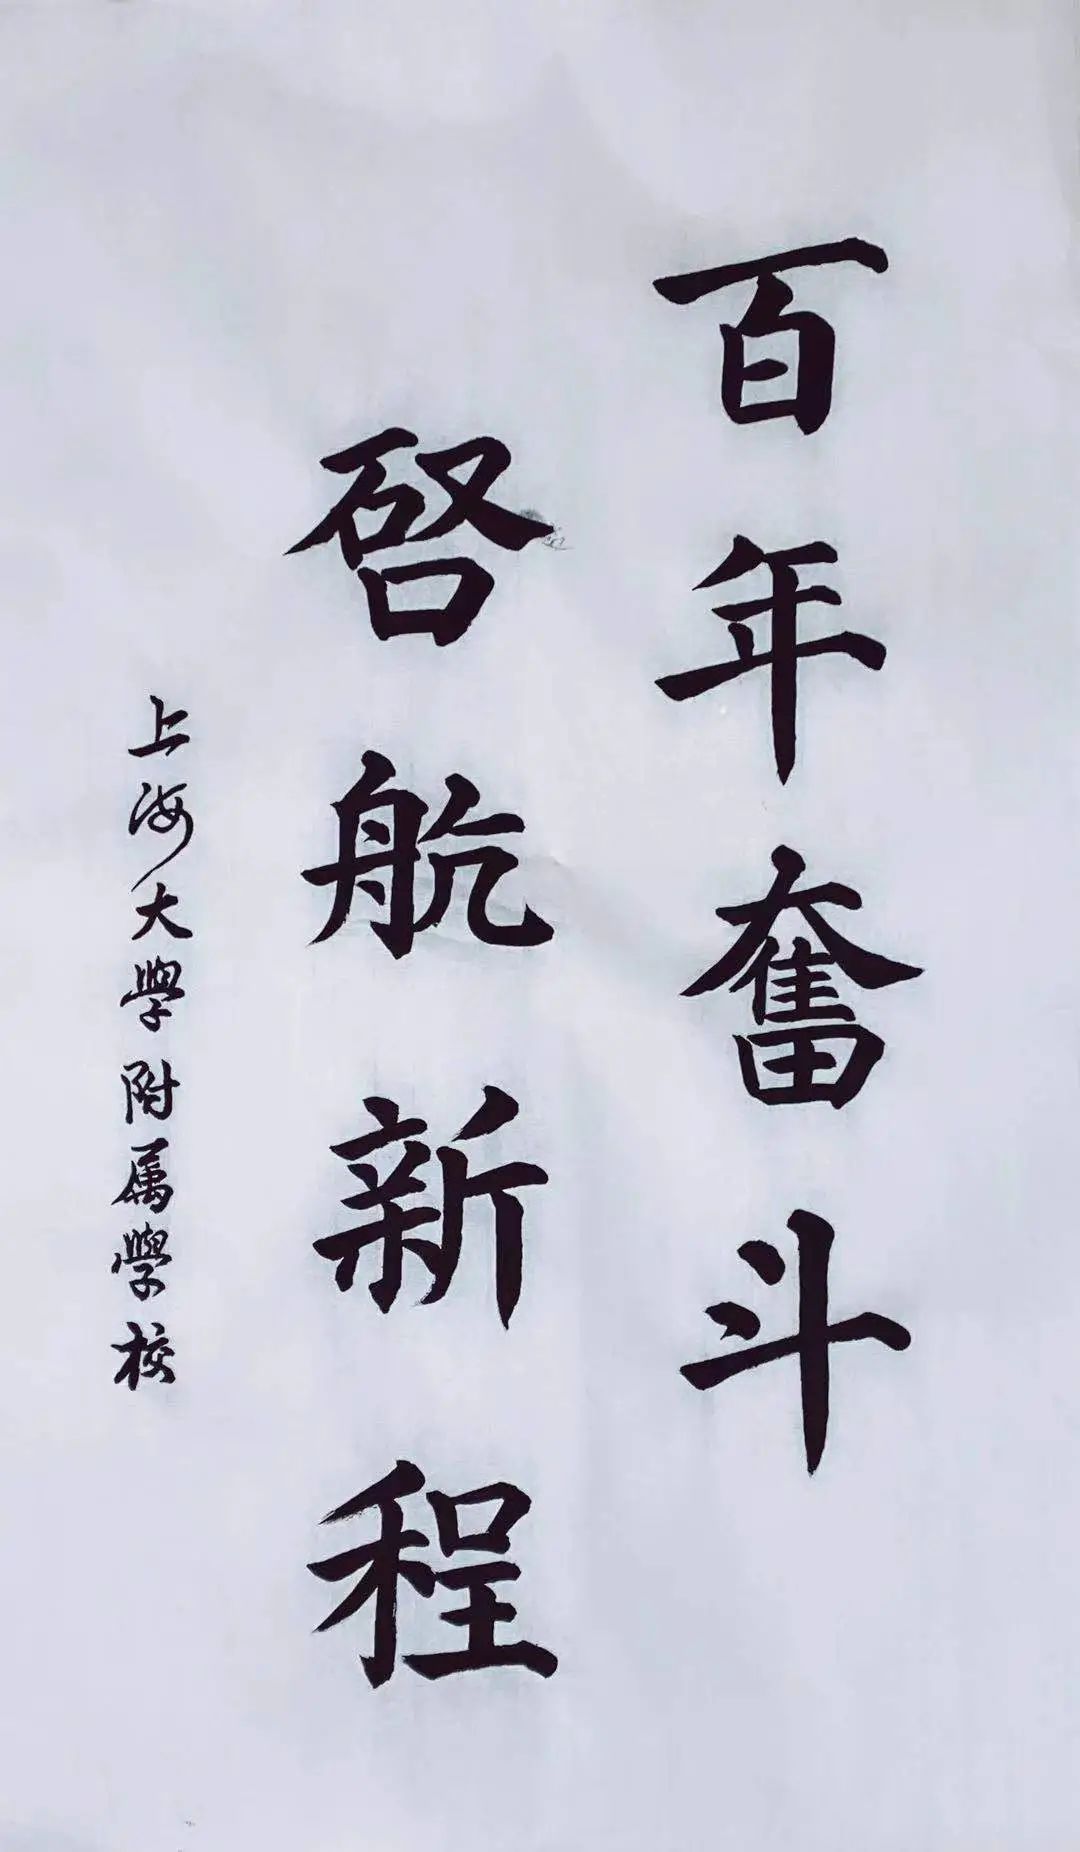 百年奮斗
啓航新程
上海大學附属學校